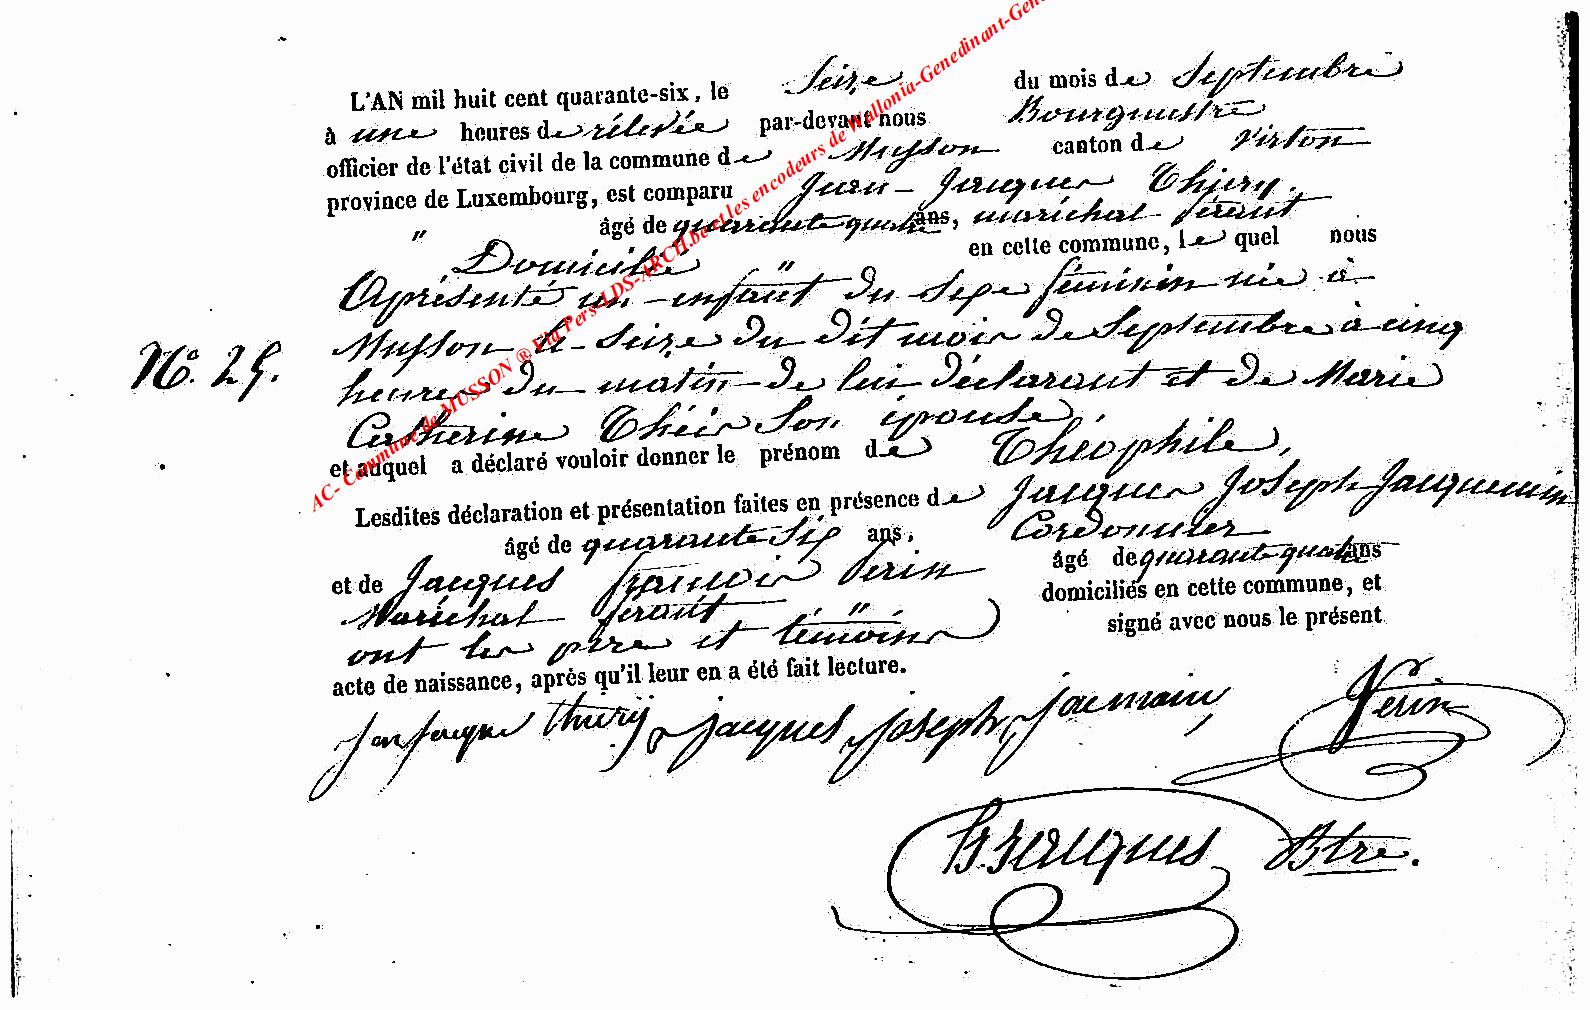 L'AN mil huit cent quarante-six, le Seize du mois de Septembre
à une heures de rélevée par-devant nous Bourgmestre
officier de l'état civil de la commune de Musson canton de Virton
province de Luxembourg, est comparu Jean-Jacques Thiery,
" âgé de quarante quatre ans, maréchal férant
Domicilié " en cette commune, le quel nous
Aprésenté un enfant du sexe féminin née à
Musson le Seize du dit mois de Septembre à cinq
N° 25. heures du matin de lui déclarant et de Marie
Catherine Son épouse,
et auquel a déclaré vouloir donner le prénom de Théophile,
Lesdites déclaration et présentation faites en présence de Jacques Joseph Jacquemin
âgé de quarante six ans, Cordonnier
et de Jacques françois Perin âgé de quarante quatre ans
Maréchal férant " domiciliés en cette commune, et
ont les père et témoins signé avec nous le présent
acte de naissance, après qu'il leur en a été fait lecture.
Jan Jacque thiery jacques joseph jacmain Perin
Jacques Btre.
AC- Commune de MUSSON ® Via Pers-LDS-ARCH.be et les encodeurs de Wallonia-Genedinant-Gen